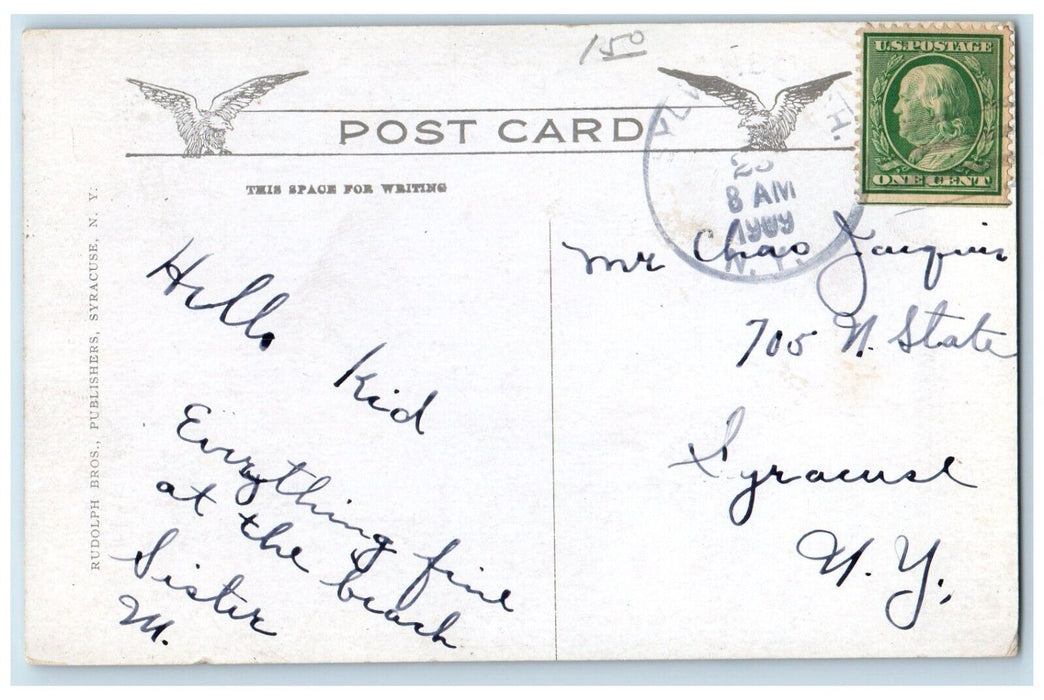 150
U.S. POSTAGE
ONE CENT
POST CARD
THIS SPACE FOR WRITING
8 AM
1909
N.Y.
RUDOLPH BROS., PUBLISHERS, SYRACUSE, N. Y.
Hello
Kid
Everything fine
at the beach
Sister
M.
Mr Chas Jaquin
705 N. State
Syracuse
N. Y.